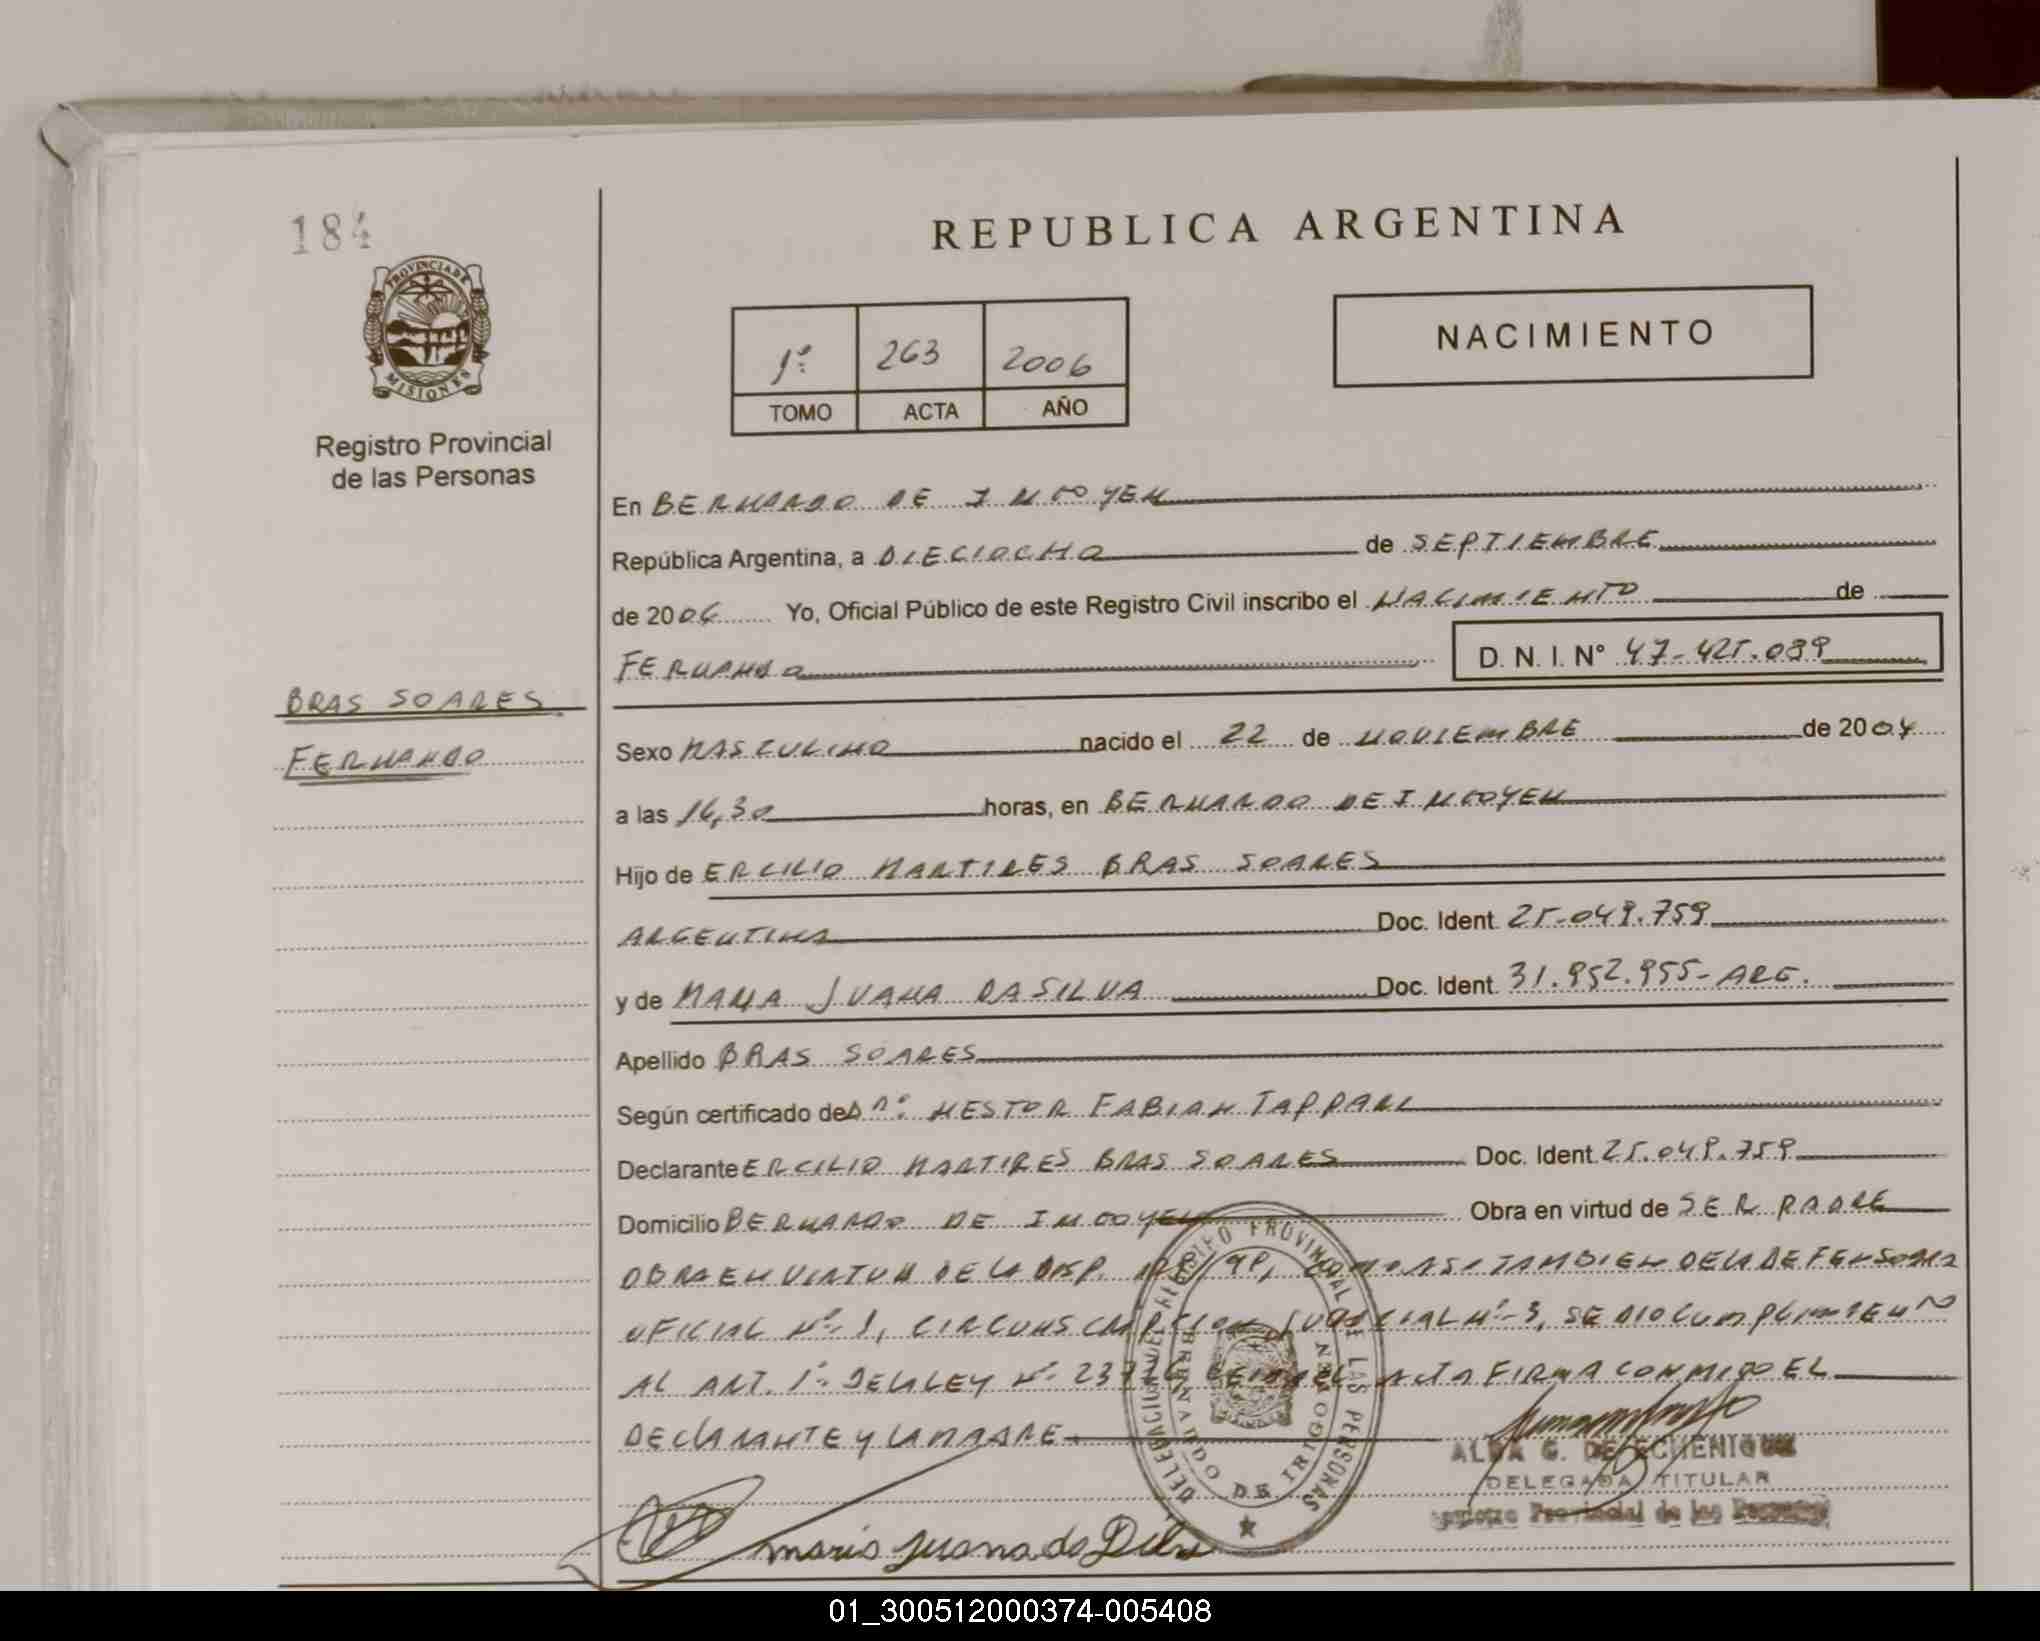 184
REPUBLICA ARGENTINA
PROVINCIA DE MISIONES
Registro Provincial
de las Personas
1º 263 2006
TOMO ACTA AÑO
NACIMIENTO
En BERNARDO DE IRIGOYEN
República Argentina, a DIECIOCHO de SEPTIEMBRE
de 2006 Yo, Oficial Público de este Registro Civil inscribo el NACIMIENTO de
FERNANDO D. N. I. Nº 47-425.089
BRAS SOARES
FERNANDO
Sexo MASCULINO nacido el 22 de NOVIEMBRE de 2004
a las 16,30 horas, en BERNARDO DE IRIGOYEN
Hijo de ERCILIO MARTIRES BRAS SOARES
ARGENTINA Doc. Ident. 25.049.759
y de MARIA JUANA DASILVA Doc. Ident. 31.952.955- ARG.
Apellido BRAS SOARES
Según certificado de Dr. NESTOR FABIAN TAPPARI
Declarante ERCILIO MARTIRES BRAS SOARES Doc. Ident. 25.049.759
Domicilio BERNARDO DE IRIGOYEN Obra en virtud de SER PADRE
OBRA EN VIRTUD DE LA DISP. /98, COMO ASI TAMBIEN DE LA DEFENSORIA
OFICIAL Nº 1, CIRCUNSCRIPCION JUDICIAL Nº 3, SE DIO CUMPLIMIENTO
AL ART. 1º DE LA LEY Nº ACTA FIRMA CONMIGO EL
DECLARANTE Y LA MADRE
DELEGACION DEL REGISTRO PROVINCIAL DE LAS PERSONAS
BERNARDO DE IRIGOYEN
ALBA G. DE ECHENIQUE
DELEGADA TITULAR
Registro Provincial de las Personas
maria juana da Silva
01_300512000374-005408